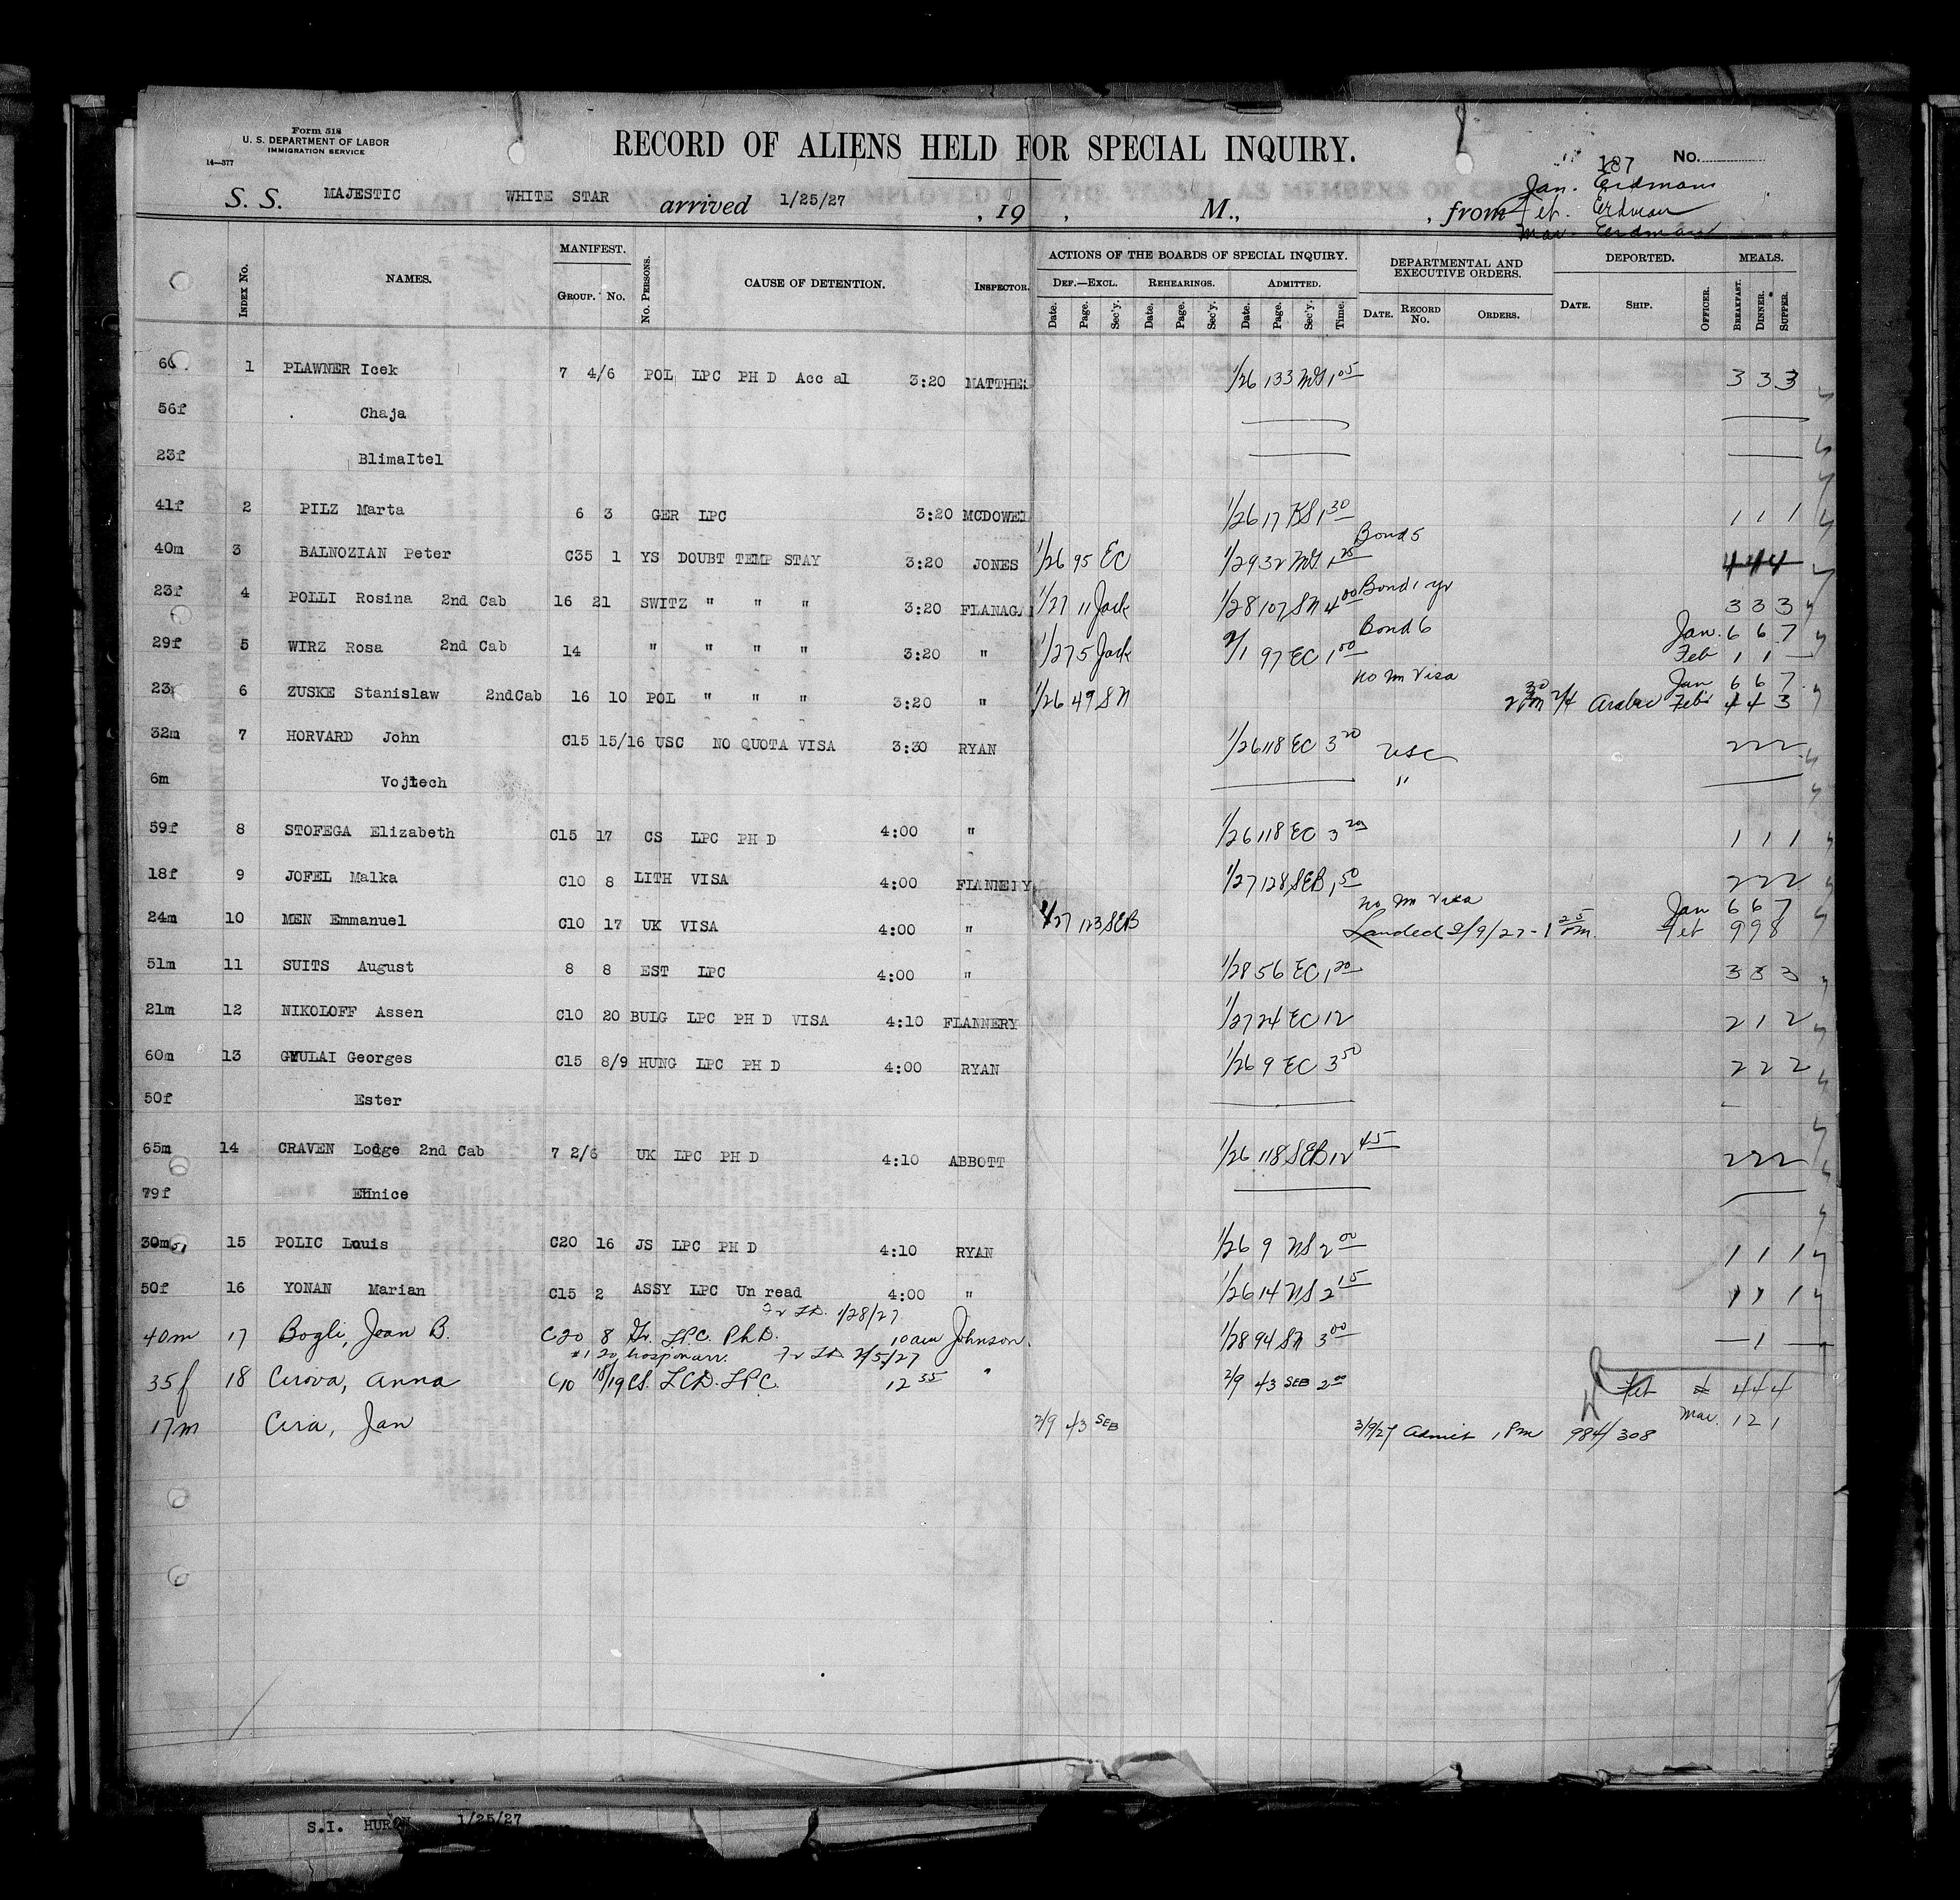 Form 518
U. S. DEPARTMENT OF LABOR
IMMIGRATION SERVICE
14—377
RECORD OF ALIENS HELD FOR SPECIAL INQUIRY.
187 No.
S. S. MAJESTIC WHITE STAR arrived 1/25/27 , 19 , M., , from
Jan. Erdman
Feb. Erdman
Mar. Erdman
Index No. NAMES. MANIFEST. Group. No. No. Persons. CAUSE OF DETENTION. Inspector. ACTIONS OF THE BOARDS OF SPECIAL INQUIRY. DEPARTMENTAL AND EXECUTIVE ORDERS. DEPORTED. MEALS.
Def.—Excl. Rehearings. Admitted.
Date. Page. Sec'y. Date. Page. Sec'y. Date. Page. Sec'y. Time. Date. Record No. Orders. Date. Ship. Officer. Breakfast. Dinner. Supper.
60 1 PLAWNER Icek 7 4/6 POL LPC PH D Acc al 3:20 MATTHES 1/26 133 MS 1 05 3 3 3
56f Chaja
23f BlimaItel
41f 2 PILZ Marta 6 3 GER LPC 3:20 MCDOWEL 1/26 17 KS 1 30 1 1 1
40m 3 BALNOZIAN Peter C35 1 YS DOUBT TEMP STAY 3:20 JONES 1/26 95 EC 1/29 32 MS 1 25 Bond 5 4 4 4
23f 4 POLLI Rosina 2nd Cab 16 21 SWITZ " " " 3:20 FLANAGA 1/27 11 Jack 1/28 107 SN 4 00 Bond 1 yr 3 3 3
29f 5 WIRZ Rosa 2nd Cab 14 " " " " 3:20 " 1/27 5 Jack 2/1 97 EC 1 00 Bond 6 Jan. 6 6 7
Feb 1 1 —
23 6 ZUSKE Stanislaw 2ndCab 16 10 POL " " " 3:20 " 1/26 49 SN No Im Visa 2 30 PM 2/4 Arabic Jan 6 6 7
Feb 4 4 3
32m 7 HORVARD John C15 15/16 USC NO QUOTA VISA 3:30 RYAN 1/26 118 EC 3 20 USC 2 2 2
6m Vojtech "
59f 8 STOFEGA Elizabeth C15 17 CS LPC PH D 4:00 " 1/26 118 EC 3 20 1 1 1
18f 9 JOFEL Malka C10 8 LITH VISA 4:00 FLANNERY 1/27 128 SEB 1 50 2 2 2
24m 10 MEN Emmanuel C10 17 UK VISA 4:00 " 1/27 123 SEB No Im Visa Jan 6 6 7
Landed 2/9/27 - 1 25 pm. Feb 9 9 8
51m 11 SUITS August 8 8 EST LPC 4:00 " 1/28 56 EC 1 20 3 3 3
21m 12 NIKOLOFF Assen C10 20 BULG LPC PH D VISA 4:10 FLANNERY 1/27 24 EC 12 2 1 2
60m 13 GYULAI Georges C15 8/9 HUNG LPC PH D 4:00 RYAN 1/26 9 EC 3 50 2 2 2
50f Ester
65m 14 CRAVEN Lodge 2nd Cab 7 2/6 UK LPC PH D 4:10 ABBOTT 1/26 118 SEB 12 45 2 2 2
79f Eunice
30m 15 POLIC Louis C20 16 JS LPC PH D 4:10 RYAN 1/26 9 NS 2 00 1 1 1
50f 16 YONAN Marian C15 2 ASSY LPC Un read 4:00 " 1/26 14 NS 2 15 1 1 1
1/28/27
40m 17 Bogli, Jean B. C20 8 Fr. LPC. Ph.D. 10 am Johnson. 1/28 94 SN 3 00 — 1 —
2/5/27
35f 18 Cirova, Anna C10 18/19 CS. LCD. LPC. 12 55 " 2/9 43 SEB 2 00 Feb 4 4 4
17m Cira, Jan 2/9 43 SEB 3/9/27 Admit 1 PM 984/308 Mar. 1 2 1
S.I. HURON 1/25/27